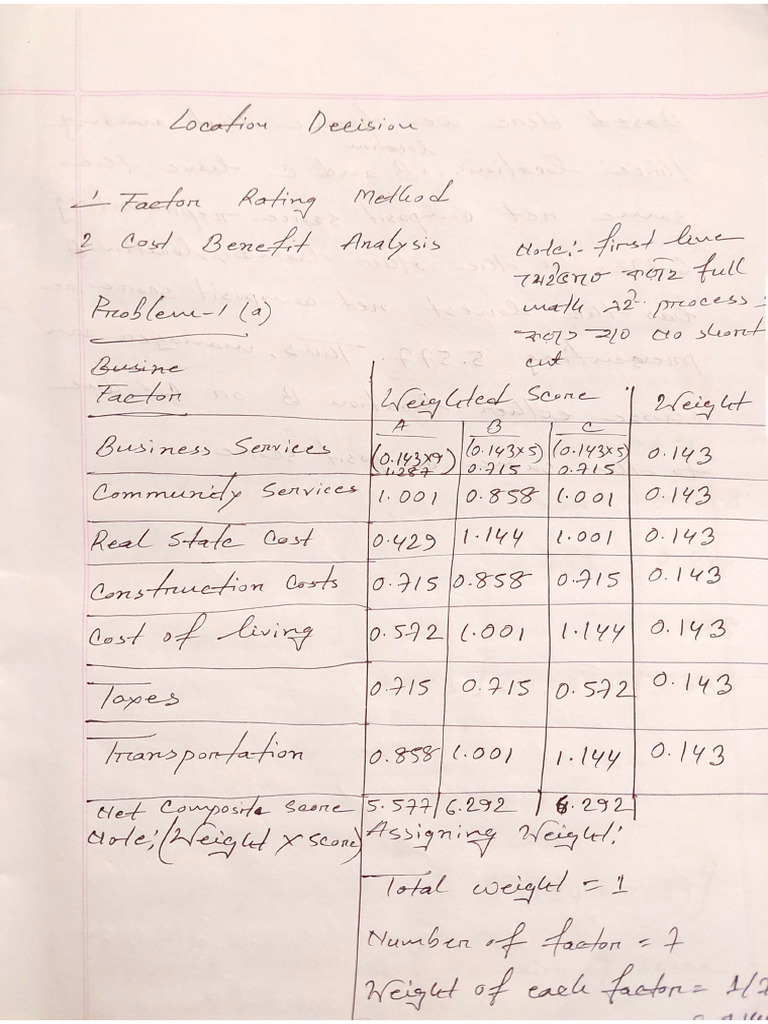 Location Decision
1 Factor Rating Method
2 Cost Benefit Analysis
Note:- first line
math process
short
cut
Problem-1 (a)
Busine
Factor Weighted Score Weight
A B C
Business Services (0.143x9) (0.143x5) (0.143x5) 0.143
1.287 0.715 0.715
Community Services 1.001 0.858 1.001 0.143
Real State Cost 0.429 1.144 1.001 0.143
Construction Costs 0.715 0.858 0.715 0.143
Cost of living 0.572 1.001 1.144 0.143
Taxes 0.715 0.715 0.572 0.143
Transportation 0.858 1.001 1.144 0.143
Net Composite Score 5.577 6.292 6.292
Note; (Weight x Score) Assigning Weight:
Total weight = 1
Number of factor = 7
Weight of each factor = 1/7